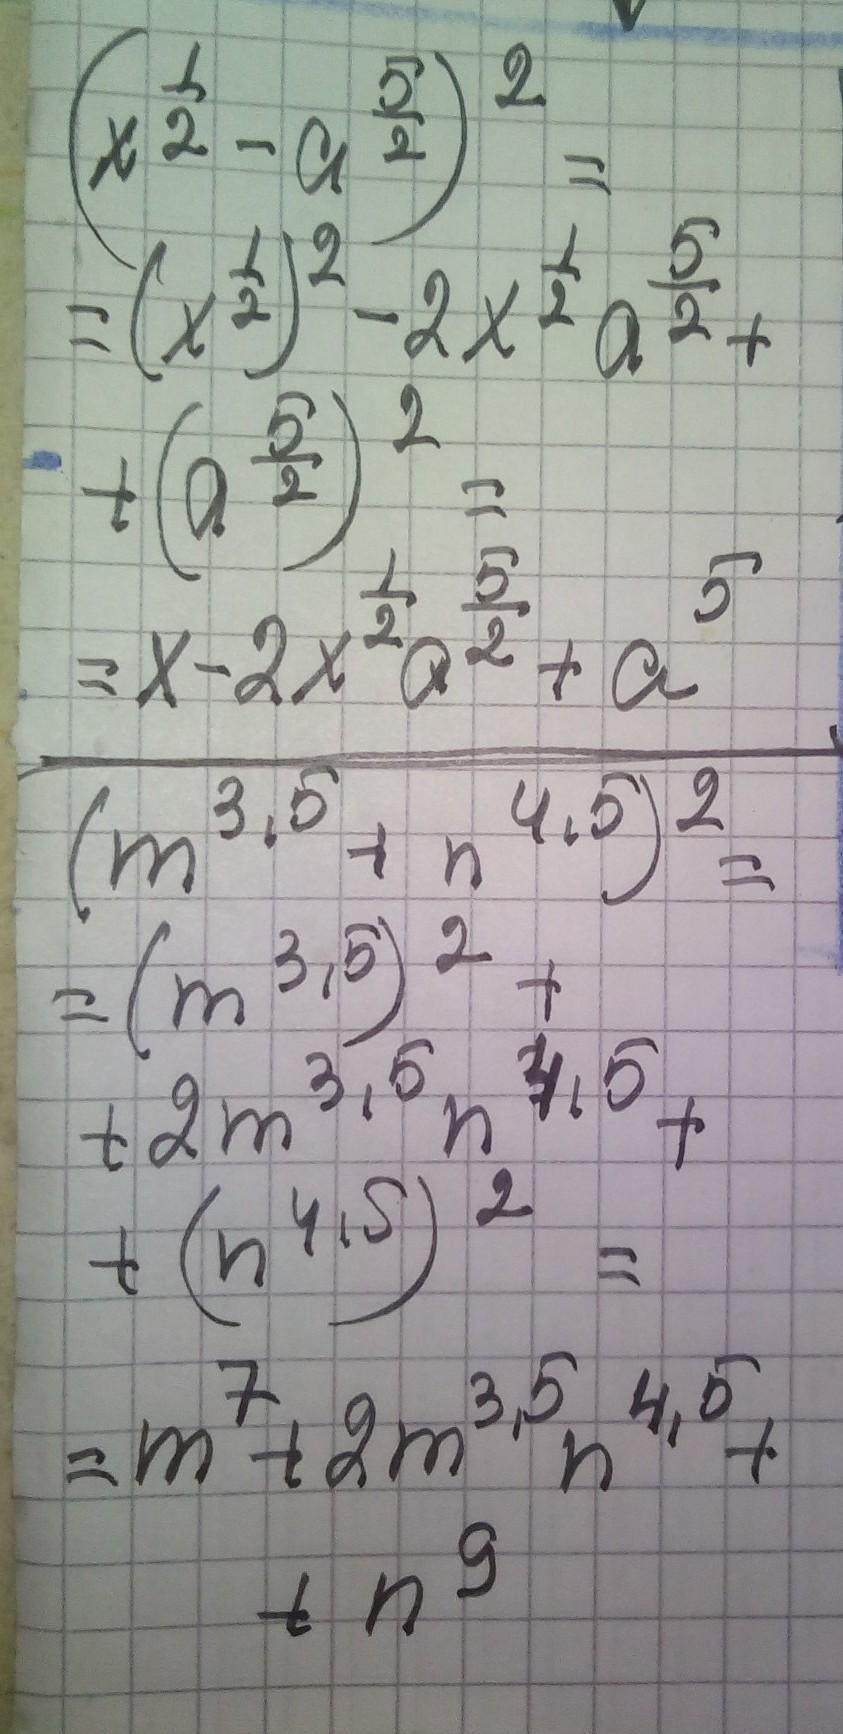 (x^{\frac{1}{2}} - a^{\frac{5}{2}})^2 =
= (x^{\frac{1}{2}})^2 - 2x^{\frac{1}{2}} a^{\frac{5}{2}} +
+ (a^{\frac{5}{2}})^2 =
= x - 2x^{\frac{1}{2}} a^{\frac{5}{2}} + a^5
(m^{3,5} + n^{4,5})^2 =
= (m^{3,5})^2 +
+ 2m^{3,5} n^{4,5} +
+ (n^{4,5})^2 =
= m^7 + 2m^{3,5} n^{4,5} +
+ n^9